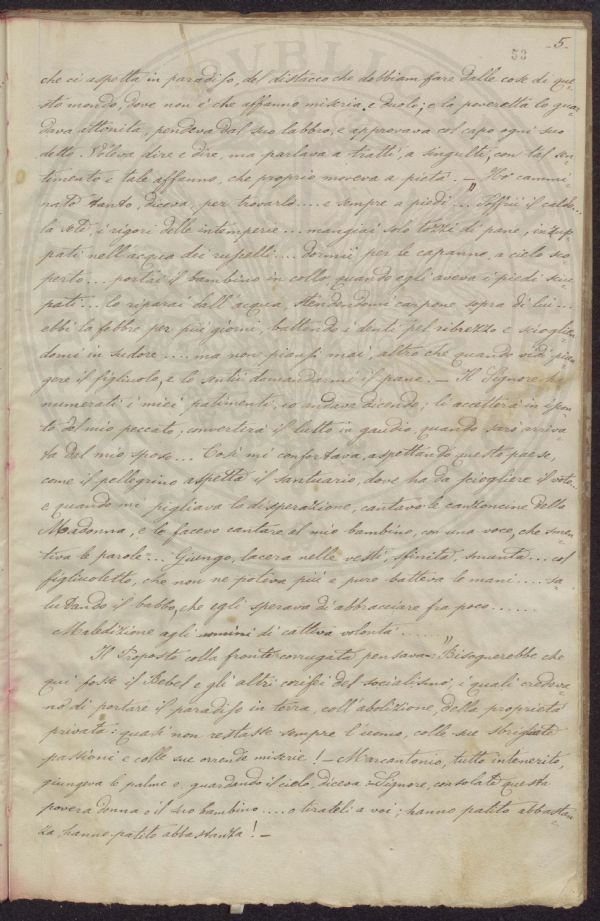 5.
53
che ci aspetta in paradiso, del distacco che dobbiam fare dalle cose di que-
sto mondo, dove non è che affanno miseria, e duolo; e la poveretta lo guar-
dava attonita, pendeva dal suo labbro, e approvava col capo ogni suo
detto. Voleva dire e dire, ma parlava a tratti, a singulti, con tal sen-
timento e tale affanno, che proprio moveva a pietà. — "Ho cammi-
nato tanto, diceva, per trovarlo.... e sempre a piedi... Soffrii il caldo...
la sete, i rigori delle intemperie... mangiai solo tozzi di pane, inzup-
pati nell'acqua dei ruscelli.... dormii per le capanne, a cielo sco-
perto.... portai il bambino in collo, quando egli aveva i piedi sciu-
pati... lo riparai dall'acqua, stendendomi carpone sopra di lui...
ebbi la febbre per più giorni, battendo i denti pel ribrezzo e scioglien-
domi in sudore.... ma non piansi mai, altro che quando vidi pian-
gere il figliuolo, e lo sentii domandarmi il pane. — Il Signore ha
numerati i miei patimenti, io andava dicendo; li accetterà in iscon-
to del mio peccato, convertirà il tutto in gaudio, quando sarò arriva-
ta dal mio sposo... Così mi confortava, aspettando questo paese,
come il pellegrino aspetta il santuario, dove ha da sciogliere il voto...
e quando mi pigliava la disperazione, cantavo le canzoncine della
Madonna, e le facevo cantare al mio bambino, con una voce, che smen-
tiva le parole... Giungo, lacera nelle vesti, sfinita, smunta... col
figliuoletto, che non ne poteva più e pure batteva le mani.... sa-
lutando il babbo, che egli sperava di abbracciare fra poco......
Maledizione agli uomini di cattiva volontà......."
Il Proposto colla fronte corrugata pensava: "Bisognerebbe che
qui fosse il Bebel e gli altri corifei del socialismo, i quali credeva-
no di portare il paradiso in terra, coll'abolizione della proprietà
privata: quasi non restasse sempre l'uomo, colle sue sbrigliate
passioni e colle sue orrende miserie! — Marcantonio, tutto intenerito,
giungeva le palme e, guardando il cielo, diceva: Signore, consolate questa
povera donna e il suo bambino.... o tirateli a voi; hanno patito abbastan-
za, hanno patito abbastanza! —